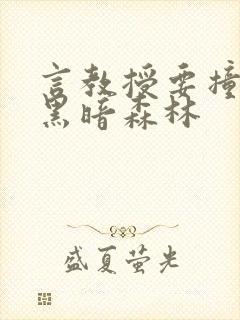 言教授要撞
黑暗森林
盛夏萤光